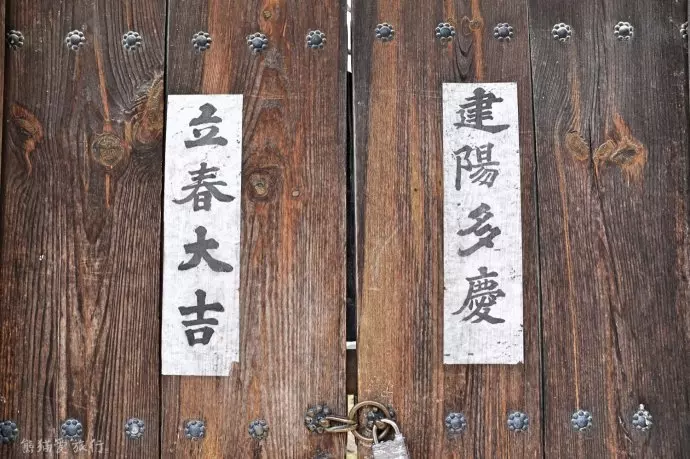 立春大吉
建陽多慶
熊猫爱旅行